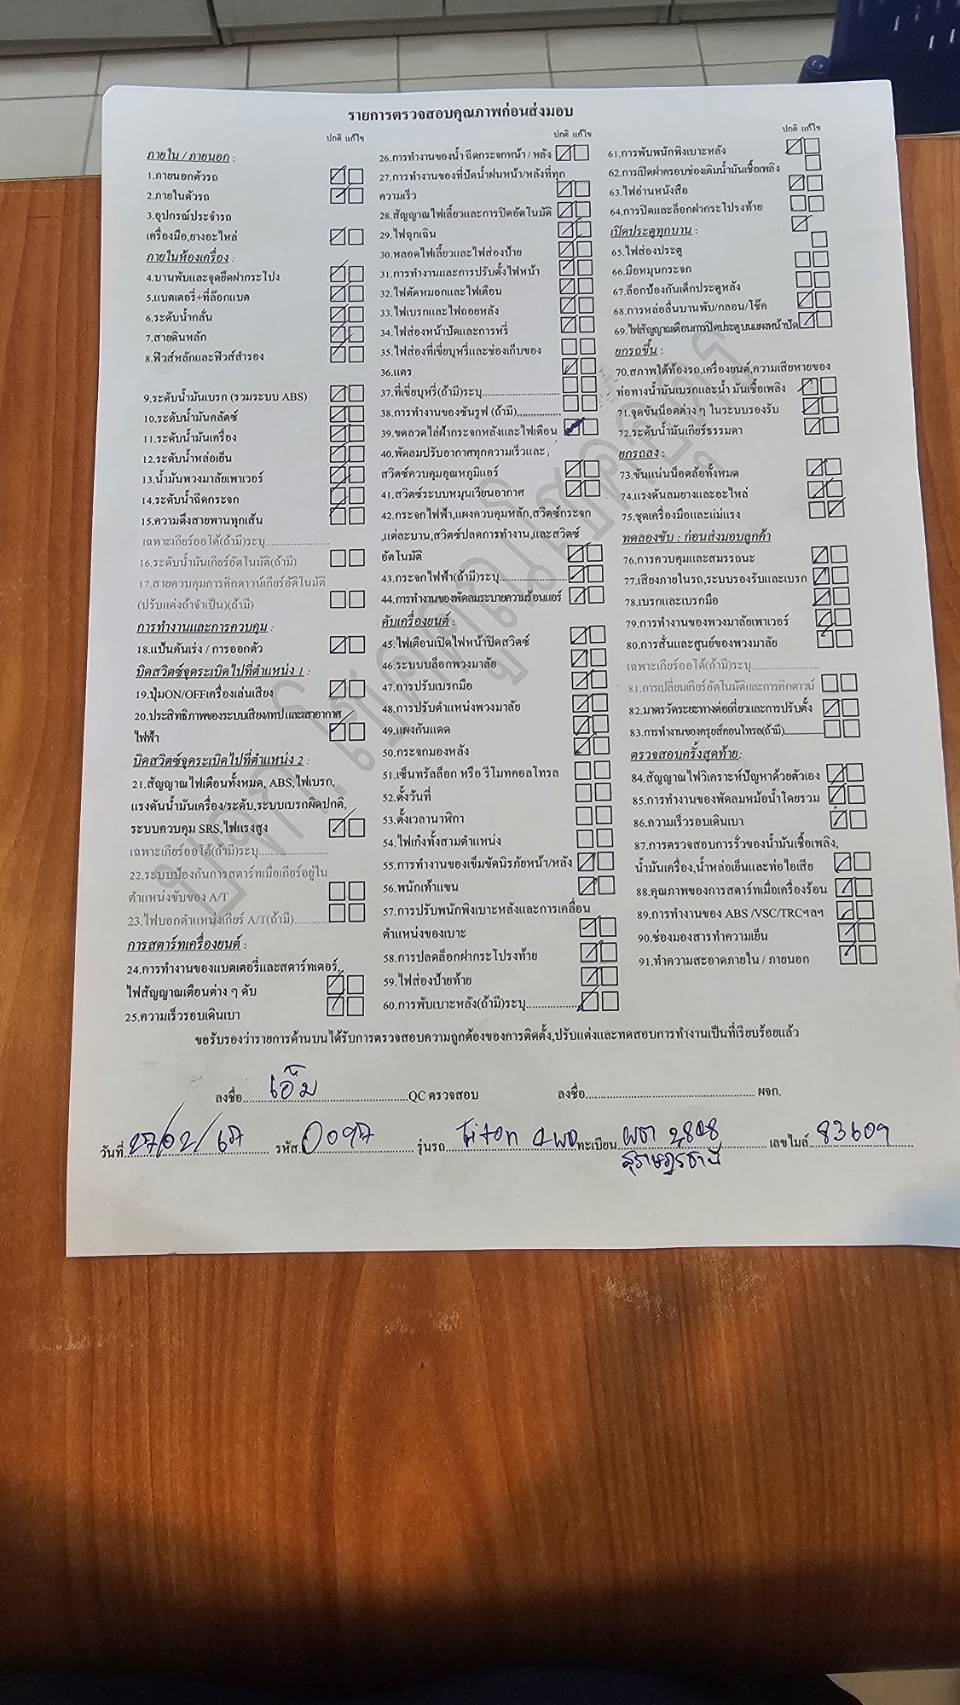 รายการตรวจสอบคุณภาพก่อนส่งมอบ
ปกติ แก้ไข
ภายใน / ภายนอก :
1.ภายนอกตัวรถ
2.ภายในตัวรถ
3.อุปกรณ์ประจำรถ
เครื่องมือ,ยางอะไหล่
ภายในห้องเครื่อง :
4.บานพับและจุดยึดฝากระโปง
5.แบตเตอรี่+ที่ล๊อกแบต
6.ระดับน้ำกลั่น
7.สายดินหลัก
8.ฟิวส์หลักและฟิวส์สำรอง
9.ระดับน้ำมันเบรก (รวมระบบ ABS)
10.ระดับน้ำมันคลัตช์
11.ระดับน้ำมันเครื่อง
12.ระดับน้ำหล่อเย็น
13.น้ำมันพวงมาลัยเพาเวอร์
14.ระดับน้ำฉีดกระจก
15.ความตึงสายพานทุกเส้น
เฉพาะเกียร์ออโต้(ถ้ามี)ระบุ
16.ระดับน้ำมันเกียร์อัตโนมัติ(ถ้ามี)
17.สายควบคุมการคิกดาวน์เกียร์อัตโนมัติ
(ปรับแต่งถ้าจำเป็น)(ถ้ามี)
การทำงานและการควบคุม :
18.แป้นคันเร่ง / การออกตัว
บิดสวิตช์จุดระเบิดไปที่ตำแหน่ง 1 :
19.ปุ่มON/OFFเครื่องเล่นเสียง
20.ประสิทธิภาพของระบบเสียงเทปและเสาอากาศ
ไฟฟ้า
บิดสวิตช์จุดระเบิดไปที่ตำแหน่ง 2 :
21.สัญญาณไฟเตือนทั้งหมด, ABS,ไฟเบรก,
แรงดันน้ำมันเครื่อง/ระดับ,ระบบเบรกผิดปกติ,
ระบบควบคุม SRS,ไฟแรงสูง
เฉพาะเกียร์ออโต้(ถ้ามี)ระบุ
22.ระบบป้องกันการสตาร์ทเมื่อเกียร์อยู่ใน
ตำแหน่งขับของ A/T
23.ไฟบอกตำแหน่งเกียร์ A/T(ถ้ามี)
การสตาร์ทเครื่องยนต์ :
24.การทำงานของแบตเตอรี่และสตาร์ทเตอร์,
ไฟสัญญาณเตือนต่าง ๆ ดับ
25.ความเร็วรอบเดินเบา
ปกติ แก้ไข
26.การทำงานของน้ำฉีดกระจกหน้า / หลัง
27.การทำงานของที่ปัดน้ำฝนหน้า/หลังที่ทุก
ความเร็ว
28.สัญญาณไฟเลี้ยวและการปิดอัตโนมัติ
29.ไฟฉุกเฉิน
30.หลอดไฟเลี้ยวและไฟส่องป้าย
31.การทำงานและการปรับตั้งไฟหน้า
32.ไฟตัดหมอกและไฟเตือน
33.ไฟเบรกและไฟถอยหลัง
34.ไฟส่องหน้าปัดและการหรี่
35.ไฟส่องที่เขี่ยบุหรี่และช่องเก็บของ
36.แตร
37.ที่เขี่ยบุหรี่(ถ้ามี)ระบุ
38.การทำงานของซันรูฟ (ถ้ามี)
39.ขดลวดไล่ฝ้ากระจกหลังและไฟเตือน
40.พัดลมปรับอากาศทุกความเร็วและ
สวิตช์ควบคุมอุณหภูมิแอร์
41.สวิตช์ระบบหมุนเวียนอากาศ
42.กระจกไฟฟ้า,แผงควบคุมหลัก,สวิตช์กระจก
,แต่ละบาน,สวิตช์ปลดการทำงาน,และสวิตช์
อัตโนมัติ
43.กระจกไฟฟ้า(ถ้ามี)ระบุ
44.การทำงานของพัดลมระบายความร้อนแอร์
ดับเครื่องยนต์ :
45.ไฟเตือนเปิดไฟหน้าปิดสวิตช์
46.ระบบบล็อกพวงมาลัย
47.การปรับเบรกมือ
48.การปรับตำแหน่งพวงมาลัย
49.แผงกันแดด
50.กระจกมองหลัง
51.เซ็นทรัลล็อก หรือ รีโมทคอลโทรล
52.ตั้งวันที่
53.ตั้งเวลานาฬิกา
54.ไฟเก๋งทั้งสามตำแหน่ง
55.การทำงานของเข็มขัดนิรภัยหน้า/หลัง
56.พนักเท้าแขน
57.การปรับพนักพิงเบาะหลังและการเคลื่อน
ตำแหน่งของเบาะ
58.การปลดล็อกฝากระโปรงท้าย
59.ไฟส่องป้ายท้าย
60.การพับเบาะหลัง(ถ้ามี)ระบุ
ปกติ แก้ไข
61.การพับพนักพิงเบาะหลัง
62.การเปิดฝาครอบช่องเติมน้ำมันเชื้อเพลิง
63.ไฟอ่านหนังสือ
64.การปิดและล็อกฝากระโปรงท้าย
เปิดประตูทุกบาน :
65.ไฟส่องประตู
66.มือหมุนกระจก
67.ล็อกป้องกันเด็กประตูหลัง
68.การหล่อลื่นบานพับ/กลอน/โช๊ค
69.ไฟสัญญาณเตือนการปิดประตูบนแผงหน้าปัด
ยกรถขึ้น :
70.สภาพใต้ท้องรถ,เครื่องยนต์,ความเสียหายของ
ท่อทางน้ำมันเบรกและน้ำมันเชื้อเพลิง
71.จุดขันน็อตต่าง ๆ ในระบบรองรับ
72.ระดับน้ำมันเกียร์ธรรมดา
ยกรถลง :
73.ขันแน่นน็อตล้อทั้งหมด
74.แรงดันลมยางและอะไหล่
75.ชุดเครื่องมือและแม่แรง
ทดลองขับ : ก่อนส่งมอบลูกค้า
76.การควบคุมและสมรรถนะ
77.เสียงภายในรถ,ระบบรองรับและเบรก
78.เบรกและเบรกมือ
79.การทำงานของพวงมาลัยเพาเวอร์
80.การสั่นและศูนย์ของพวงมาลัย
เฉพาะเกียร์ออโต้(ถ้ามี)ระบุ
81.การเปลี่ยนเกียร์อัตโนมัติและการคิกดาวน์
82.มาตรวัดระยะทางต่อเที่ยวและการปรับตั้ง
83.การทำงานของครุยส์คอนโทรล(ถ้ามี)
ตรวจสอบครั้งสุดท้าย:
84.สัญญาณไฟวิเคราะห์ปัญหาด้วยตัวเอง
85.การทำงานของพัดลมหม้อน้ำโดยรวม
86.ความเร็วรอบเดินเบา
87.การตรวจสอบการรั่วของน้ำมันเชื้อเพลิง,
น้ำมันเครื่อง,น้ำหล่อเย็นและท่อไอเสีย
88.คุณภาพของการสตาร์ทเมื่อเครื่องร้อน
89.การทำงานของ ABS /VSC/TRCฯลฯ
90.ช่องมองสารทำความเย็น
91.ทำความสะอาดภายใน / ภายนอก
ขอรับรองว่ารายการด้านบนได้รับการตรวจสอบความถูกต้องของการติดตั้ง,ปรับแต่งและทดสอบการทำงานเป็นที่เรียบร้อยแล้ว
ลงชื่อ เอ็ม QC ตรวจสอบ ลงชื่อ ผจก.
วันที่ 27/02/67 รหัส 0097 รุ่นรถ Triton 4WD ทะเบียน ผธา 2808 เลขไมล์ 83609
สุราษฎร์ธานี